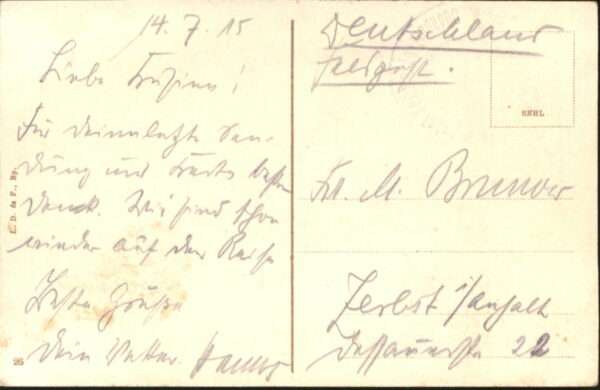 14. 7. 15
Liebe Cusine!
Für deine letzte Sen-
dung und Karte besten
Dank. Wir sind schon
wieder auf der Reise
Beste Grüße
Dein Vetter Hanns
E. D. & P., Mg.
25
Deutschland
Feldpost.
SEHL
Frl. M. Brunner
Zerbst i/Anhalt
Dessauerstr 22